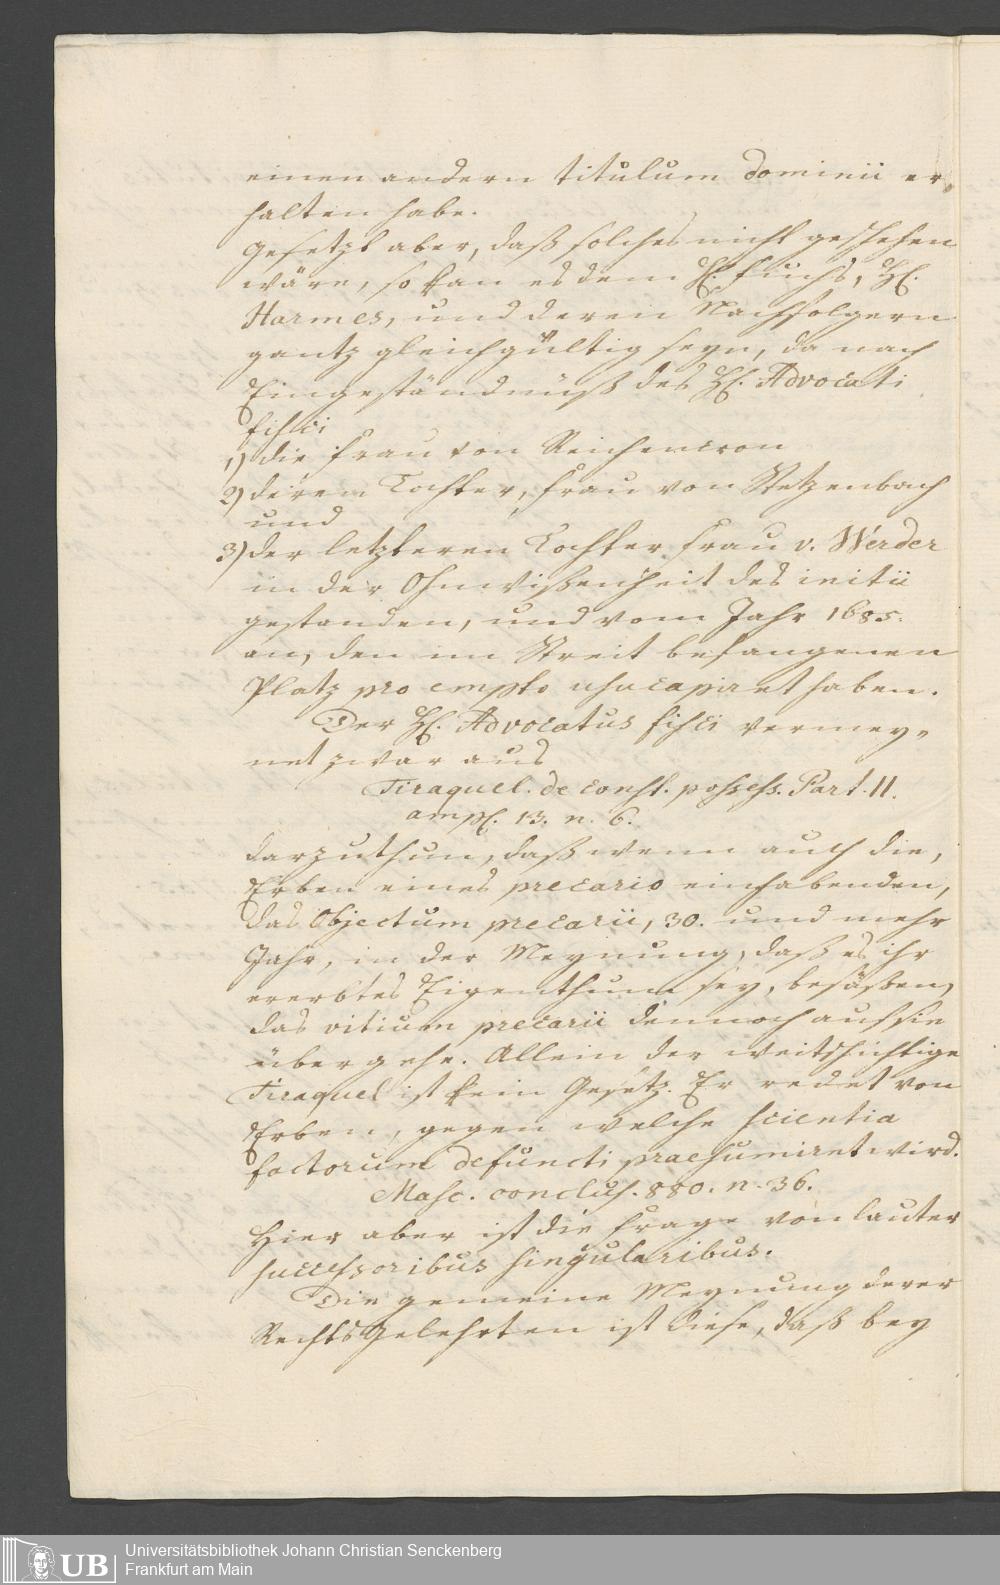 einen andern titulum dominii er,
halten habe.
gesetzt aber, daß solches nicht geschehen
wäre, so kan es dem H. Fuchs, H.
Harmes, und deren Nachfolgern
gantz gleichgültig seyn, da nach
Eingeständnüß des H. Advocati
fisci
1.) die Frau von Reichencron
2) deren Tochter, Frau von Stetzenbach
und
3) der letzteren Tochter Frau v. Werder
in der Ohnwißenheit des initii
gestanden, und vom Jahr 1685.
an, den im Streit befangenen
Platz pro empto usucapiret haben.
Der H. Advocatus fisci vermey,
net zwar aus
Tiraquel. de const. possess. Part. II.
ampl. 13. n. 6.
darzuthun, daß wenn auch die,
Erben eines precario einhabenden,
das Objectum precarii, 30. und mehr
Jahr, in der Meynung, daß es ihr
ererbtes Eigenthum sey, besäßen,
das vitium precarii dennoch auf sie
übergehe. Allein der weitschichtige
Tiraquel ist kein Gesetz. Er redet von
Erben, gegen welche scientia
factorum defuncti praesumiret wird.
Masc. conclus. 880. n. 36.
Hier aber ist die Frage von lauter
successoribus singularibus.
Die gemeine Meynung derer
RechtsGelehrten ist diese, daß bey
UB
Universitätsbibliothek Johann Christian Senckenberg
Frankfurt am Main